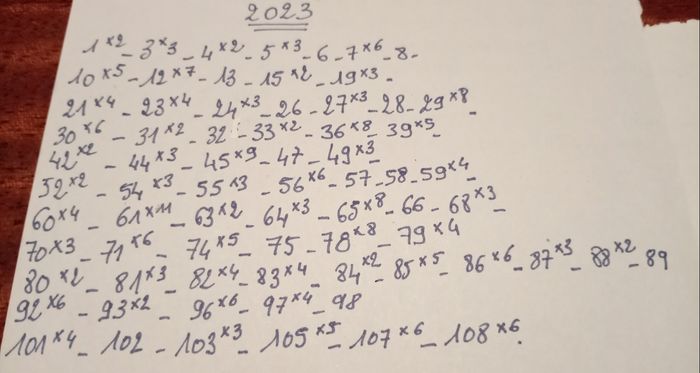 2023
1×2 - 3×3 - 4×2 - 5×3 - 6 - 7×6 - 8 -
10×5 - 12×7 - 13 - 15×2 - 19×3 -
21×4 - 23×4 - 24×3 - 26 - 27×3 - 28 - 29×8 -
30×6 - 31×2 - 32 - 33×2 - 36×8 - 39×5 -
42×2 - 44×3 - 45×9 - 47 - 49×3 -
52×2 - 54×3 - 55×3 - 56×6 - 57 - 58 - 59×4 -
60×4 - 61×11 - 63×2 - 64×3 - 65×8 - 66 - 68×3 -
70×3 - 71×6 - 74×5 - 75 - 78×8 - 79×4
80×2 - 81×3 - 82×4 - 83×4 - 84×2 - 85×5 - 86×6 - 87×3 - 88×2 - 89
92×6 - 93×2 - 96×6 - 97×4 - 98
101×4 - 102 - 103×3 - 105×5 - 107×6 - 108×6.